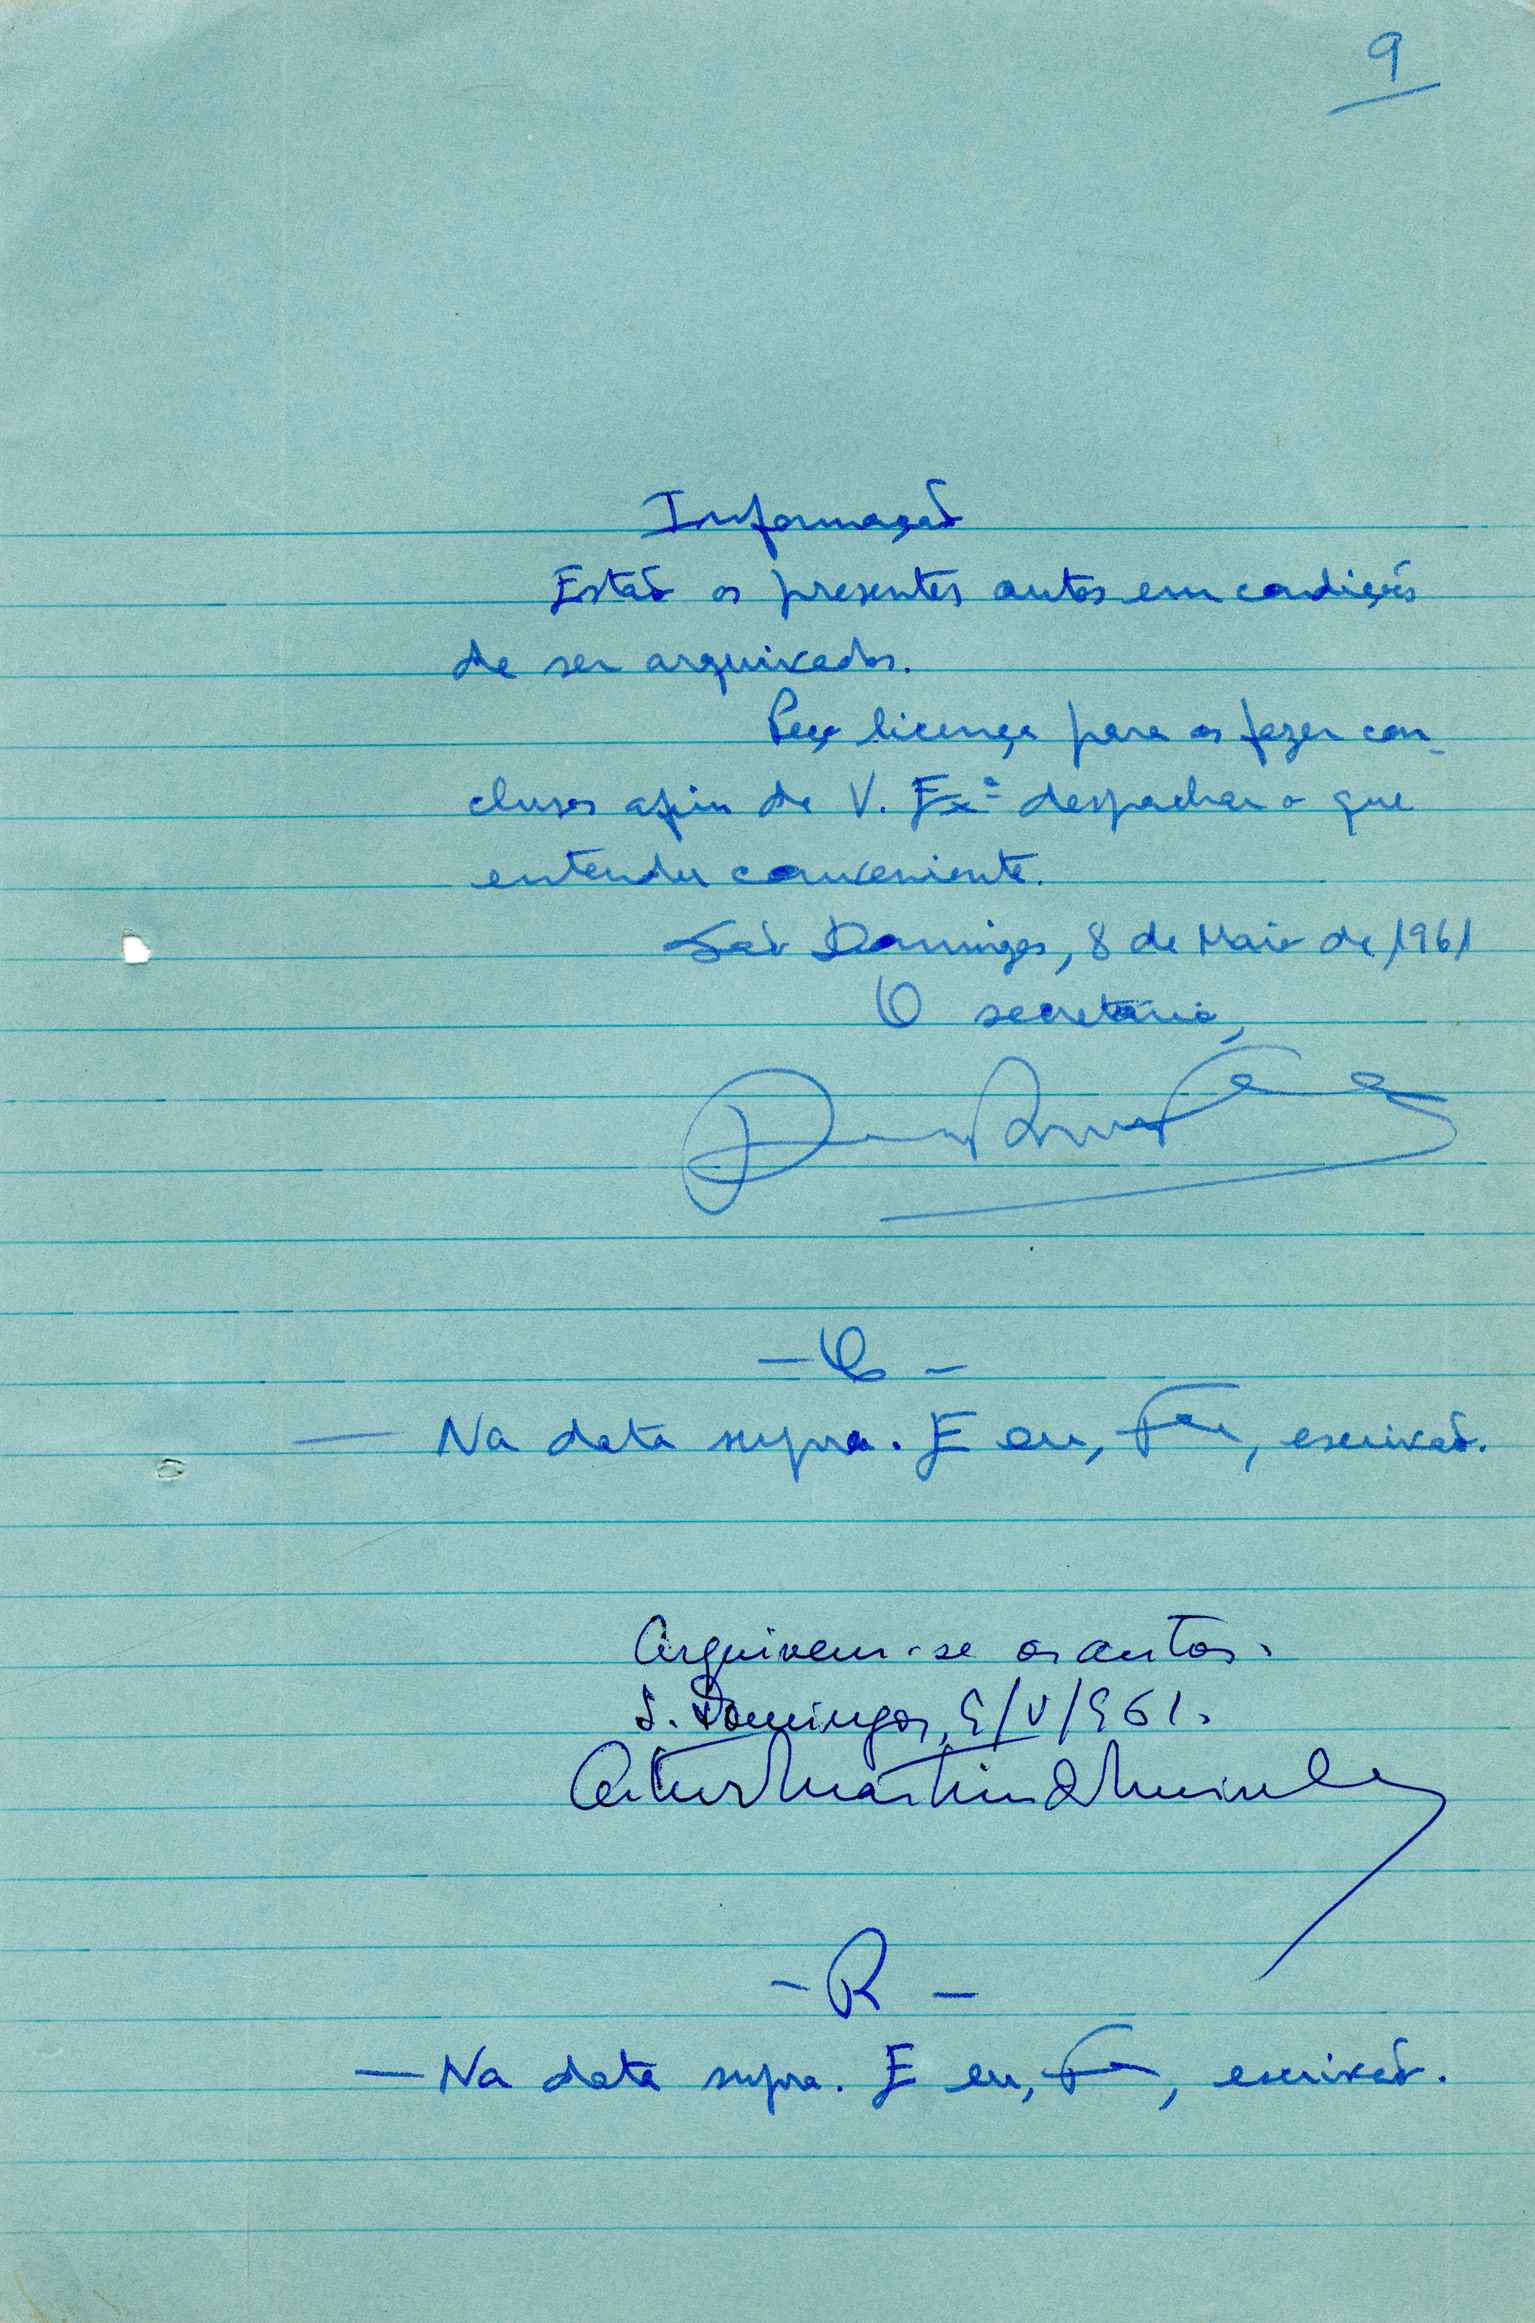 9
Informação
Estão os presentes autos em condições
de ser arquivados.
Peço licença para os fazer con-
clusos afim de V. Exª despachar o que
entender conveniente.
São Domingos, 8 de Maio de 1961
O secretário,
- C -
— Na data supra. E eu, , escrivão.
Arquivem-se os autos.
S. Domingos, 9/V/961.
Artur Martins
- R -
— Na data supra. E eu, , escrivão.